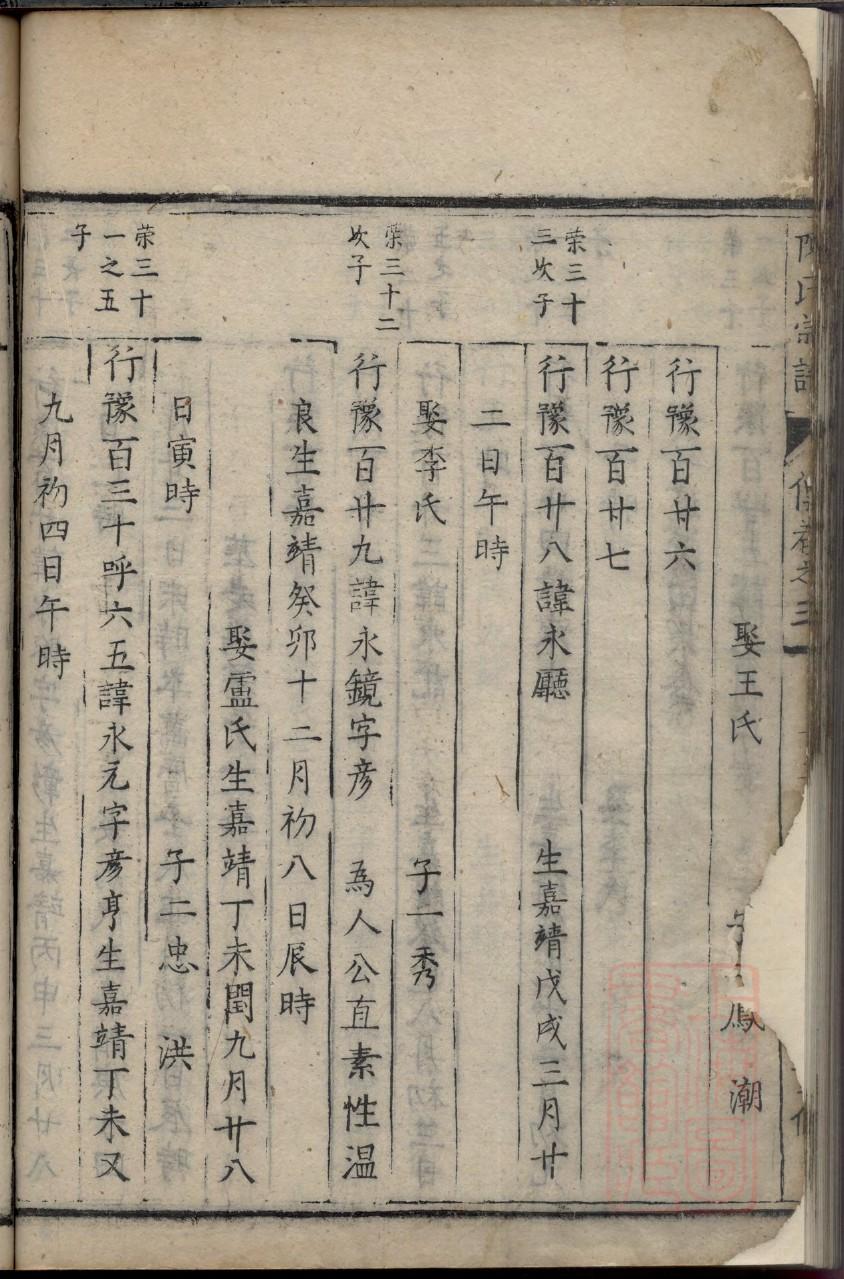 陳氏宗譜 傳卷之三
娶王氏 子 鳳 潮
行豫百廿六
行豫百廿七
荣三十
三次子
行豫百廿八諱永廳 生嘉靖戊戌三月廿
二日午時
娶李氏 子一秀
荣三十二
次子
行豫百廿九諱永鏡字彦 為人公直素性温
良生嘉靖癸卯十二月初八日辰時
娶盧氏生嘉靖丁未閏九月廿八
日寅時 子二忠 洪
荣三十
一之五
子
行豫百三十呼六五諱永元字彦亨生嘉靖丁未又
九月初四日午時